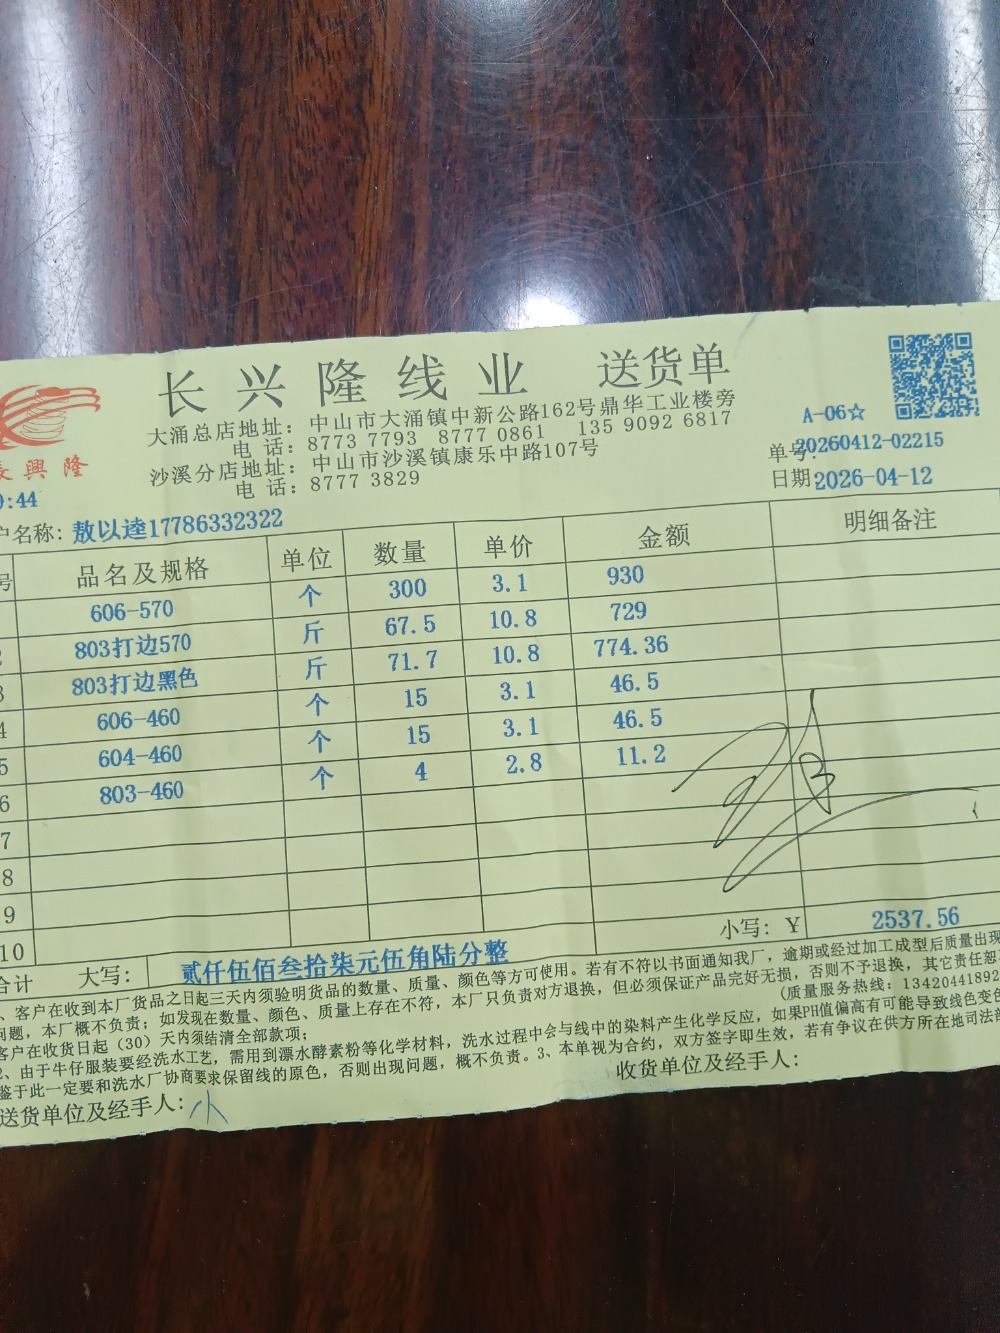 长兴隆线业 送货单
大涌总店地址：中山市大涌镇中新公路162号鼎华工业楼旁
电 话：8773 7793 8777 0861 135 9092 6817
沙溪分店地址：中山市沙溪镇康乐中路107号
电 话：8777 3829
A-06☆
興隆
单号:20260412-02215
日期2026-04-12
:44
户名称: 敖以逵17786332322
号 品名及规格 单位 数量 单价 金额 明细备注
606-570 个 300 3.1 930
2 803打边570 斤 67.5 10.8 729
3 803打边黑色 斤 71.7 10.8 774.36
4 606-460 个 15 3.1 46.5
5 604-460 个 15 3.1 46.5
6 803-460 个 4 2.8 11.2
7
8
9
10
小写：￥ 2537.56
合计 大写： 贰仟伍佰叁拾柒元伍角陆分整
、客户在收到本厂货品之日起三天内须验明货品的数量、质量、颜色等方可使用。若有不符以书面通知我厂，逾期或经过加工成型后质量出现
问题，本厂概不负责；如发现在数量、颜色、质量上存在不符，本厂只负责对方退换，但必须保证产品完好无损，否则不予退换，其它责任恕
客户在收货日起（30）天内须结清全部款项；
(质量服务热线：1342044189
2、由于牛仔服装要经洗水工艺，需用到漂水酵素粉等化学材料，洗水过程中会与线中的染料产生化学反应，如果PH值偏高有可能导致线色变色
鉴于此一定要和洗水厂协商要求保留线的原色，否则出现问题，概不负责。3、本单视为合约，双方签字即生效，若有争议在供方所在地司法部
送货单位及经手人：小 收货单位及经手人：